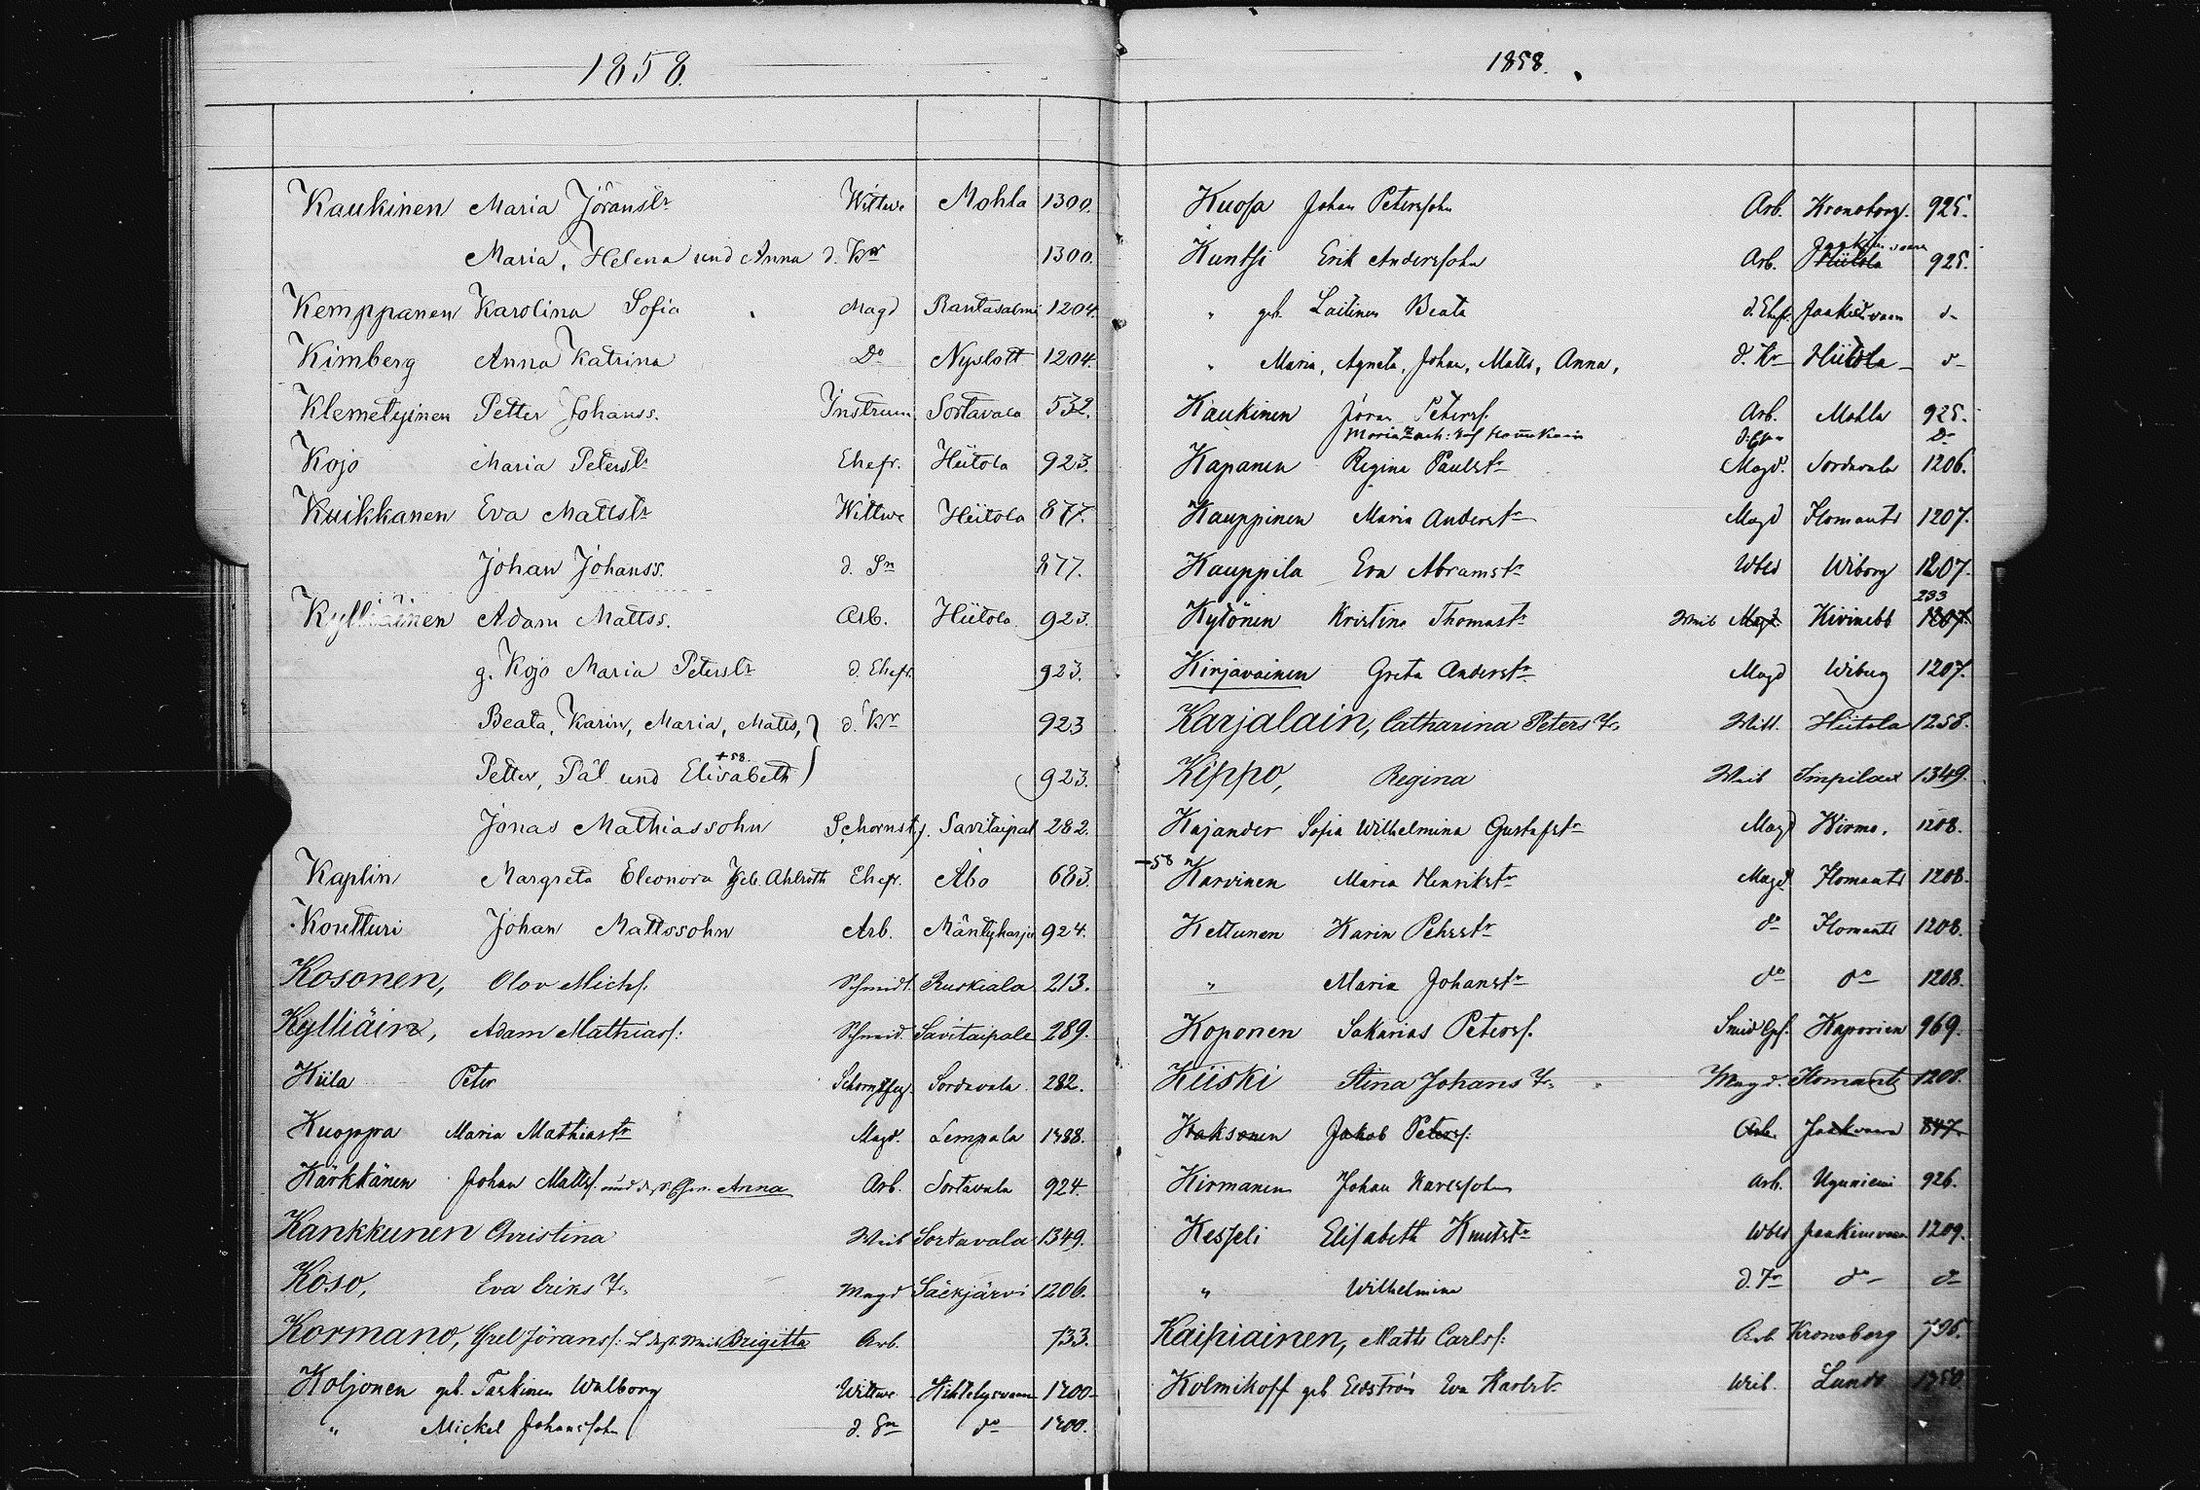 1858.
Kaukinen Maria Jöranstr Wittwe Mohla 1300.
Maria, Helena und Anna d. Kr 1300.
Kemppanen Karolina Sofia Magd Rantasalmi 1204.
Kimberg Anna Katrina Do Nyslott 1204.
Klemetyinen Petter Johanss. Instrum. Sortavala 532.
Kojo Maria Peterstr Ehefr. Hiitola 923.
Kuikkanen Eva Mattstr Wittwe Hiitola 877.
Johan Johanss. d. Sn 877.
Kylliäinen Adam Mattss. Arb. Hiitola 923.
g. Kojo Maria Peterstr d. Ehefr. 923.
Beata, Karin, Maria, Matts, d. Kr 923
+58.
Petter, Pål und Elisabeth 923.
Jonas Mathiassohn Schornstf. Savitaipal 282.
Kaplin Margreta Eleonora geb. Ahlroth Ehefr. Åbo 683.
Koutturi Johan Mattssohn Arb. Mäntyharju 924.
Kosonen, Olov Michs. Schmidt. Ruskiala 213.
Kylliäin, Adam Mathiass: Schmid. Savitaipale 289.
Kiila Peter Schornstfeg. Sordavala 282.
Kuoppa Maria Mathiastr Magd. Lempala 1488.
Kärkkänen Johan Matts. und Anna Arb. Sortavala 924.
Kankkunen Christina Weib Sortavala 1349.
Koso, Eva Eriks Tr Magd Säckjärvi 1206.
Kormano, Grel Jörans: Weib Brigitta Arb. 733.
Koljonen geb. Taskinen Walborg Wittwe 1200
" Mickel Johanssohn d. Sn do 1200.
1858.
Kuosa Johan Peterssohn Arb. Kronoborg. 925.
Jaakimvaara
Kuntsi Erik Anderssohn Arb. Hiitola 925.
" geb. Laitinen Beata d. Ehefr Jaakimvaara d-
" Maria, Agneta, Johan, Matts, Anna, d. Kr Hiitola d-
Kaukinen Jöran Peterss. Arb. Mohla 925.
Maria Do
Kapanen Regina Paulstr Magd. Sordavala 1206.
Kauppinen Maria Anderstr Magd Ilomants 1207.
Kauppila Eva Abramstr Wbld Wiborg 1207.
233
Kytönen Kristina Thomastr Weib Magd. Kivinebb 1207.
Kirjavainen Greta Anderstr Magd Wiburg 1207.
Karjalain, Catharina Peters Tr Witt. Hiitola 1258.
Kippo, Regina Weib Impilax 1349.
Kajander Sofia Wilhelmina Gustafstr Magd Wirmo. 1208.
+58
Karvinen Maria Henrikstr Magd Ilomants 1208.
Kettunen Karin Pehrstr do Ilomants 1208.
" Maria Johanstr do do 1208.
Koponen Sakarias Peterss. Kaporien 969.
Kiiski Stina Johans Tr Magd. Ilomants 1208.
Haksonen Jakob Peterss: Arb. 847
Hirmanen Johan Arb. Uguniemi 926.
Kesseli Elisabeth Knutstr Wbld Jaakimvaara 1209.
" Wilhelmina d. Tr do d-
Kaipiainen, Matts Carls: Arb Kronoberg 796.
Kolmikoff geb Eva Karlstr Weib. Lundo 1350